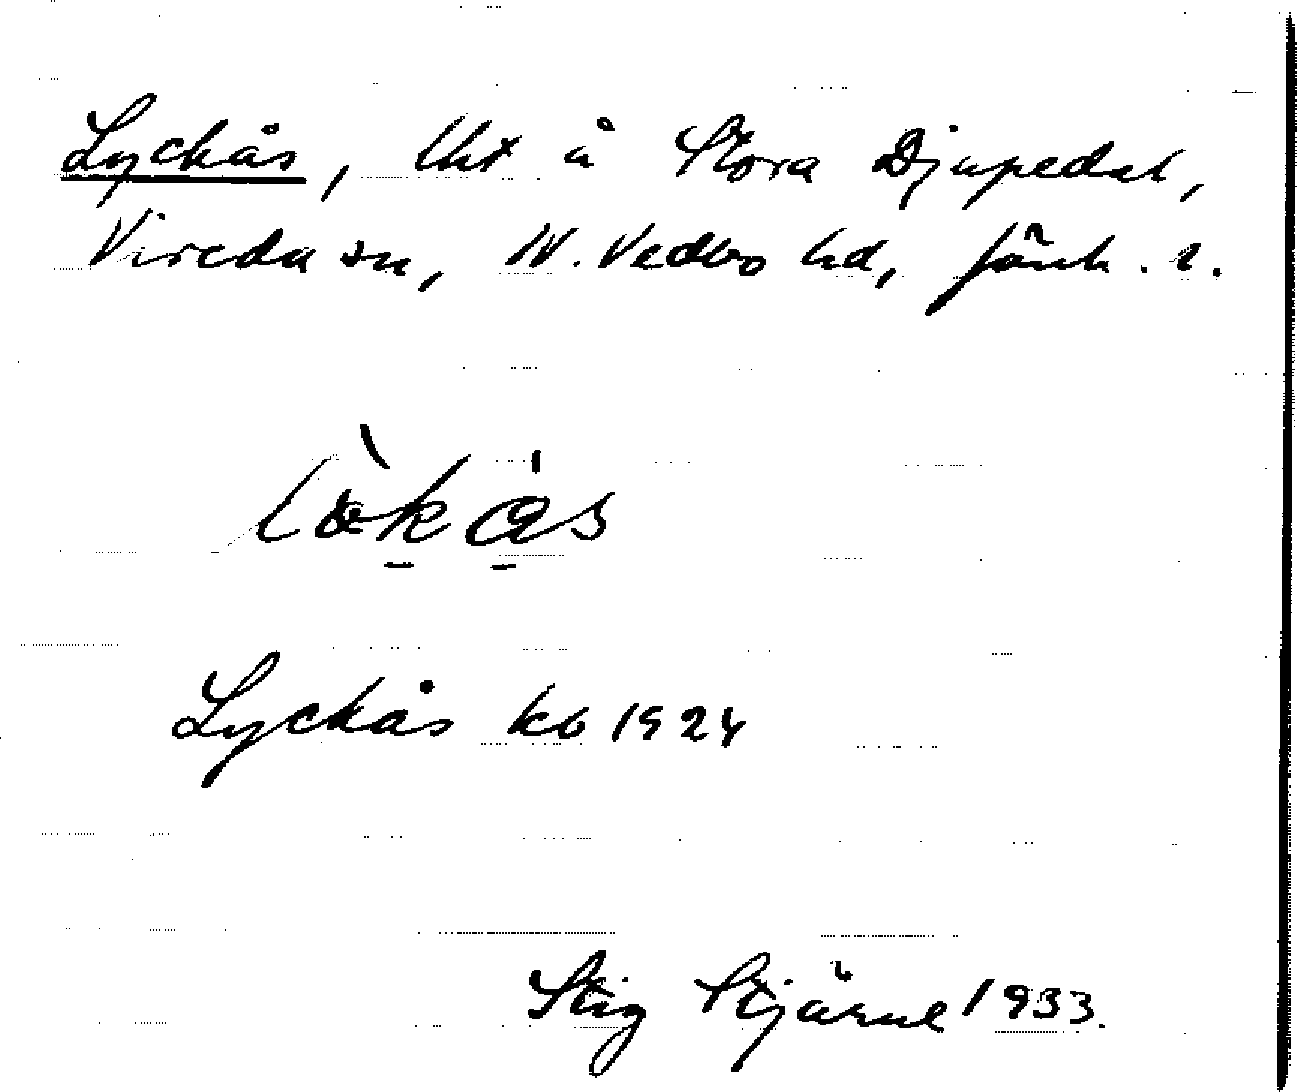 Lyckås, lht å Stora Djupedal,
Vireda sn, N. Vedbo hd, Jönk. l.
Lyckås kb 1924
Stig Stjärne 1933.